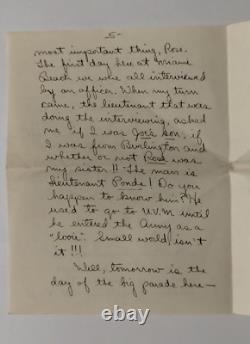 -5-
most important thing, Rose.
The first day here at Miami
Beach we were all interviewed
by an officer. When my turn
came, the lieutenant that was
doing the interviewing, asked
me if I was Joe's son, if
I was from Burlington and
whether or not Rose was
my sister!! The man is
lieutenant Ponds! Do you
happen to know him? He
used to go to U.V.M. until
he entered the Army as a
"looie". Small world isn't
it!!!
Well, tomorrow is the
day of the big parade here—
© 122mu.com